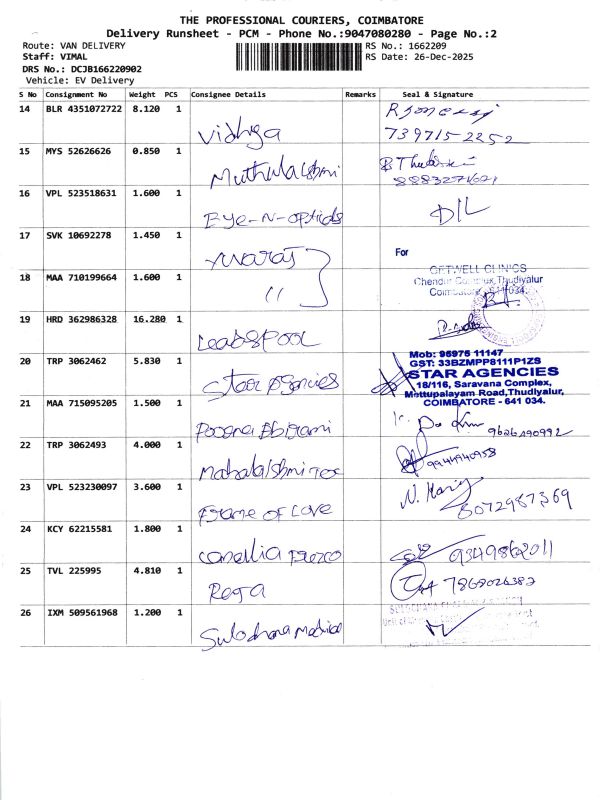 THE PROFESSIONAL COURIERS, COIMBATORE
Delivery Runsheet - PCM - Phone No.:9047080280 - Page No.:2
Route: VAN DELIVERY RS No.: 1662209
Staff: VIMAL RS Date: 26-Dec-2025
DRS No.: DCJB166220902
Vehicle: EV Delivery
S No Consignment No Weight PCS Consignee Details Remarks Seal & Signature
14 BLR 4351072722 8.120 1
739715-2252
15 MYS 52626626 0.850 1
Muthulakshmi
16 VPL 523518631 1.600 1
Eye-N-opticals
17 SVK 10692278 1.450 1
For
18 MAA 710199664 1.600 1 "
GETWELL CLINICS
Chendur Complex, Thudiyalur
Coimbatore - 641 034.
19 HRD 362986328 16.280 1
20 TRP 3062462 5.830 1
Star Agencies
Mob: 96975 11147
GST: 33BZMPP8111P1ZS
STAR AGENCIES
18/116, Saravana Complex,
Mettupalayam Road, Thudiyalur,
COIMBATORE - 641 034.
21 MAA 715095205 1.500 1
9626490992
22 TRP 3062493 4.000 1
Mahalakshmi Tex
9944940958
23 VPL 523230097 3.600 1
Frame of Love
N. Harij
8072987369
24 KCY 62215581 1.800 1
9349862011
25 TVL 225995 4.810 1
7868026382
26 IXM 509561968 1.200 1
Sulochana medical